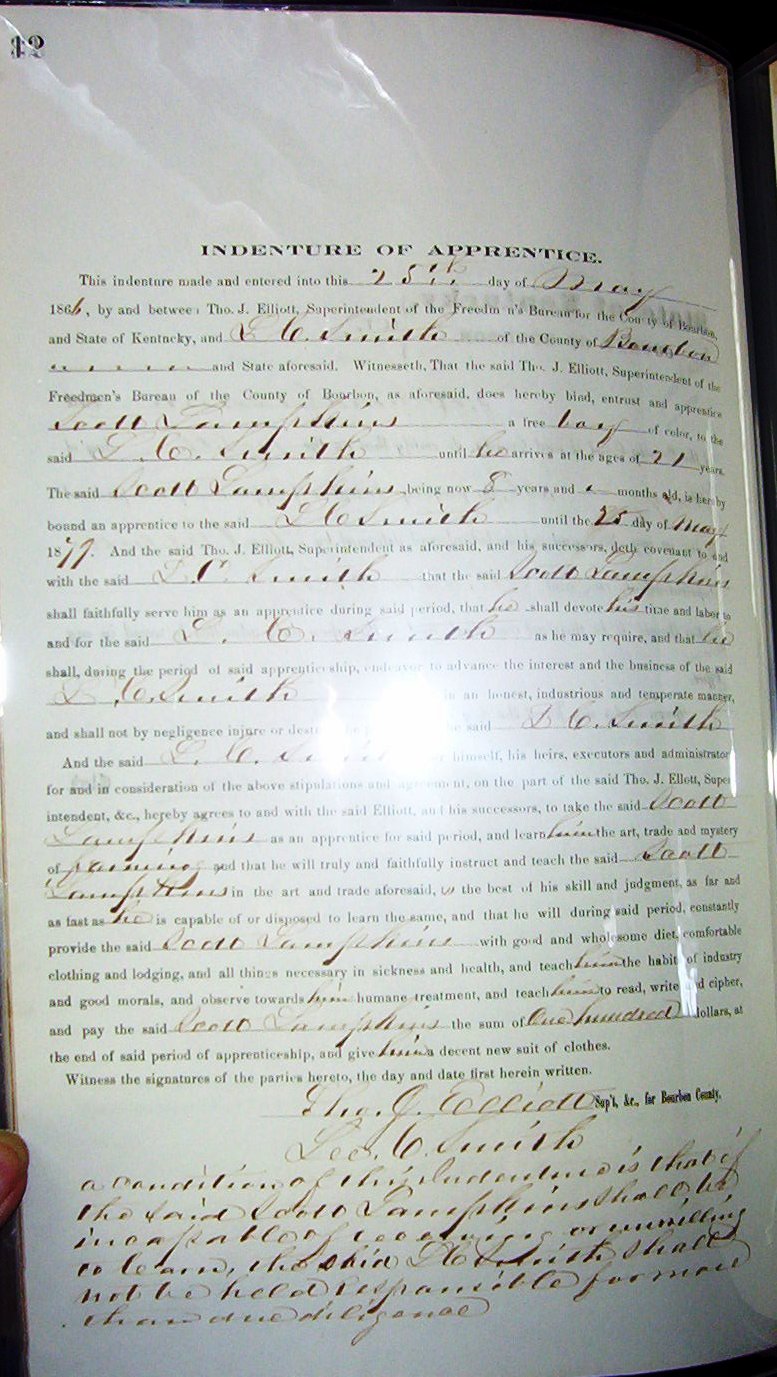 42
INDENTURE OF APPRENTICE.
This indenture made and entered into this 25th day of May
1866, by and between Tho. J. Elliott, Superintendent of the Freedm n's Bureau for the County of Bourbon,
and State of Kentucky, and L C. Smith of the County of Bourbon
and State aforesaid. Witnesseth, That the said Tho. J. Elliott, Superintendent of the
Freedmen's Bureau of the County of Bourbon, as aforesaid, does hereby bind, entrust and apprentice
Scott Lampkins a free boy of color, to the
said L. C. Smith until he arrives at the ages of 21 years.
The said Scott Lampkins, being now 8 years and months old, is hereby
bound an apprentice to the said L C Smith until the 25 day of May
1879. And the said Tho. J. Elliott, Superintendent as aforesaid, and his successors, doth covenant to and
with the said L. C. Smith that the said Scott Lampkins
shall faithfully serve him as an apprentice during said period, that he shall devote his time and labor to
and for the said L. C. Smith as he may require, and that he
shall, during the period of said apprenticeship, endeavor to advance the interest and the business of the said
L. C. Smith in an honest, industrious and temperate manner,
and shall not by negligence injure or destroy the said L C. Smith
And the said L. C. himself, his heirs, executors and administrator
for and in consideration of the above stipulations and agreement, on the part of the said Tho. J. Ellett, Super
intendent, &c., hereby agrees to and with the said Elliott, and his successors, to take the said Scott
Lampkins as an apprentice for said period, and learn him the art, trade and mystery
of farming and that he will truly and faithfully instruct and teach the said Scott
Lampkins in the art and trade aforesaid, to the best of his skill and judgment, as far and
as fast as he is capable of or disposed to learn the same, and that he will during said period, constantly
provide the said Scott Lampkins with good and wholesome diet, comfortable
clothing and lodging, and all things necessary in sickness and health, and teach him the habits of industry
and good morals, and observe towards him humane treatment, and teach him to read, write and cipher,
and pay the said Scott Lampkins the sum of One hundred dollars, at
the end of said period of apprenticeship, and give him a decent new suit of clothes.
Witness the signatures of the parties hereto, the day and date first herein written.
Tho. J. Elliott Sup't, &c., for Bourbon County.
Leo. C. Smith
a condition of this Indenture is that if
the said Scott Lampkins shall be
incapable of receiving or unwilling
to learn, the said L C Smith shall
not be held responsible for more
than due diligence